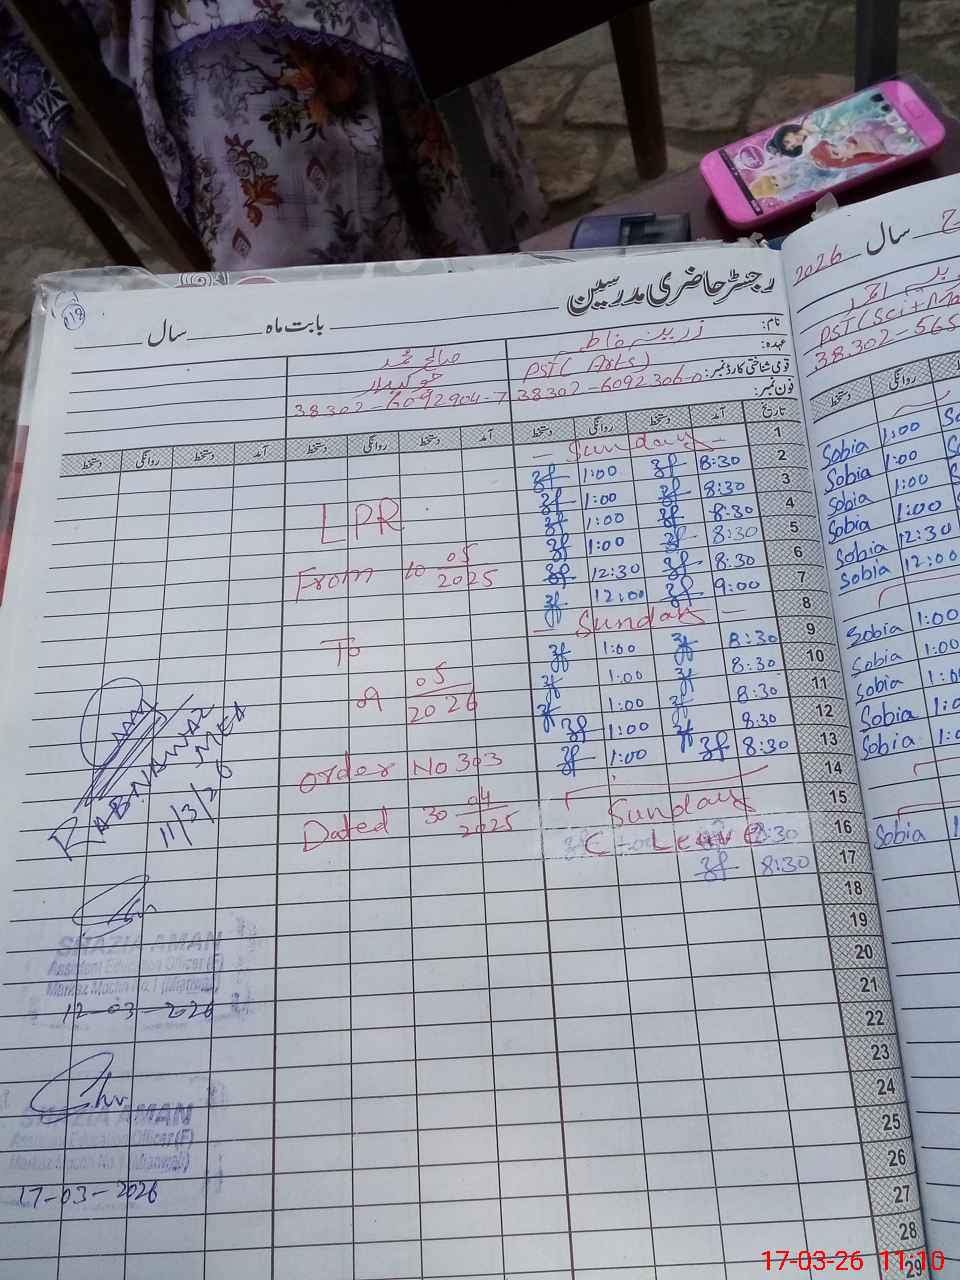 رجسٹر حاضری مدرسین بابت ماہ سال
2026 سال
112
نام: زرینہ
صالح محمد
عہدہ: PST (Arts)
چوکیدار
قومی شناختی کارڈ نمبر: 38302-6092306-0
38302-6092904-7
فون نمبر:
PST (Sci+Ma
38302-565
تاریخ آمد دستخط روانگی دستخط آمد دستخط روانگی دستخط آمد دستخط روانگی دستخط
روانگی دستخط
1 — Sunday —
2 8:30 zf 1:00 zf
3 8:30 zf 1:00 zf
4 8:30 zf 1:00 zf
5 8:30 zf 1:00 zf
6 8:30 zf 12:30 zf
7 9:00 zf 12:00 zf
8 — Sunday —
9 8:30 zf 1:00 zf
10 8:30 zf 1:00 zf
11 8:30 zf 1:00 zf
12 8:30 zf 1:00 zf
13 8:30 zf 1:00 zf
14
15 Sunday
16 C Leave 8:30
17 8:30 zf
18
19
20
21
22
23
24
25
26
27
28
29
LPR
From 10 05/2025
To
9 05/2026
Order No 303
Dated 30 04/2025
Sobia 1:00
Sobia 1:00
Sobia 1:00
Sobia 1:00
Sobia 12:30
Sobia 12:00
Sobia 1:00
Sobia 1:00
Sobia 1:00
Sobia 1:0
Sobia 1:0
Sobia 1
RABNAWAZ
SMEA
11/3/26
SHAZIA AMAN
Assistant Education Officer (F)
Markaz Mochh No.1 (Mianwali)
12-03-2026
SHAZIA AMAN
Assistant Education Officer (F)
Markaz Mochh No.1 (Mianwali)
17-03-2026
17-03-26 11:10